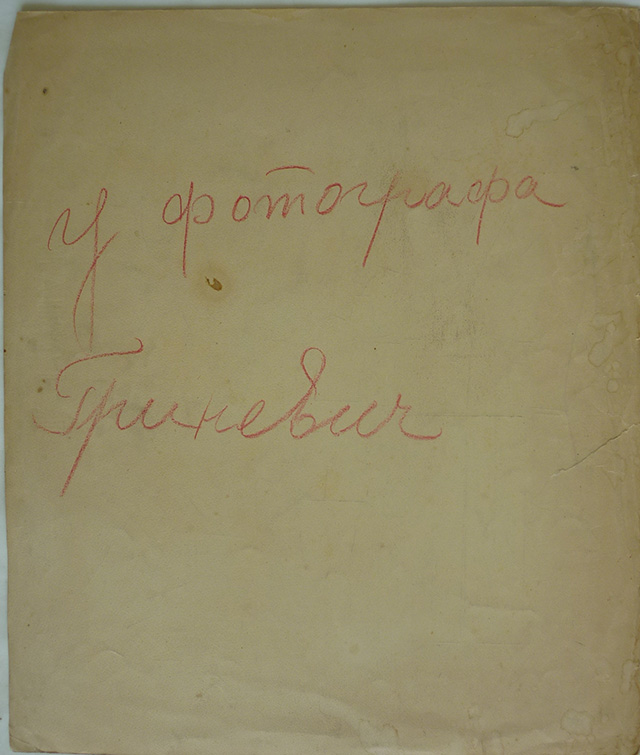 у фотографа
Гриневич